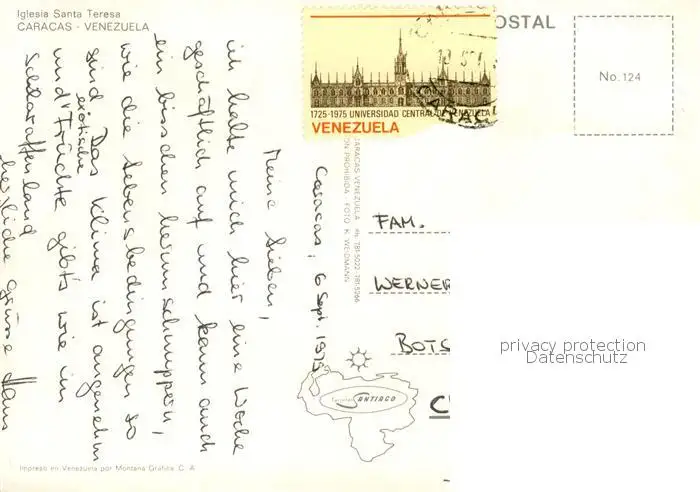 Iglesia Santa Teresa
CARACAS - VENEZUELA
Caracas, 6 Sept. 1975
Meine Lieben,
ich halte mich hier eine Woche
geschäftlich auf und kann auch
ein bisschen herumschnuppern,
wie die Lebensbedingungen so
sind. Das Klima ist angenehm
und exotische Früchte gibt's wie im
Schlaraffenland
herzliche Grüsse Hans
Impreso en Venezuela por Montana Gráfica C. A.
1725-1975 UNIVERSIDAD CENTRAL DE VENEZUELA
VENEZUELA
CARACAS
OSTAL
No. 124
CARACAS VENEZUELA
ON PROHIBIDA FOTO K. WEIDMANN
FAM.
WERNER
BOTS
C
SANTIAGO
privacy protection
Datenschutz